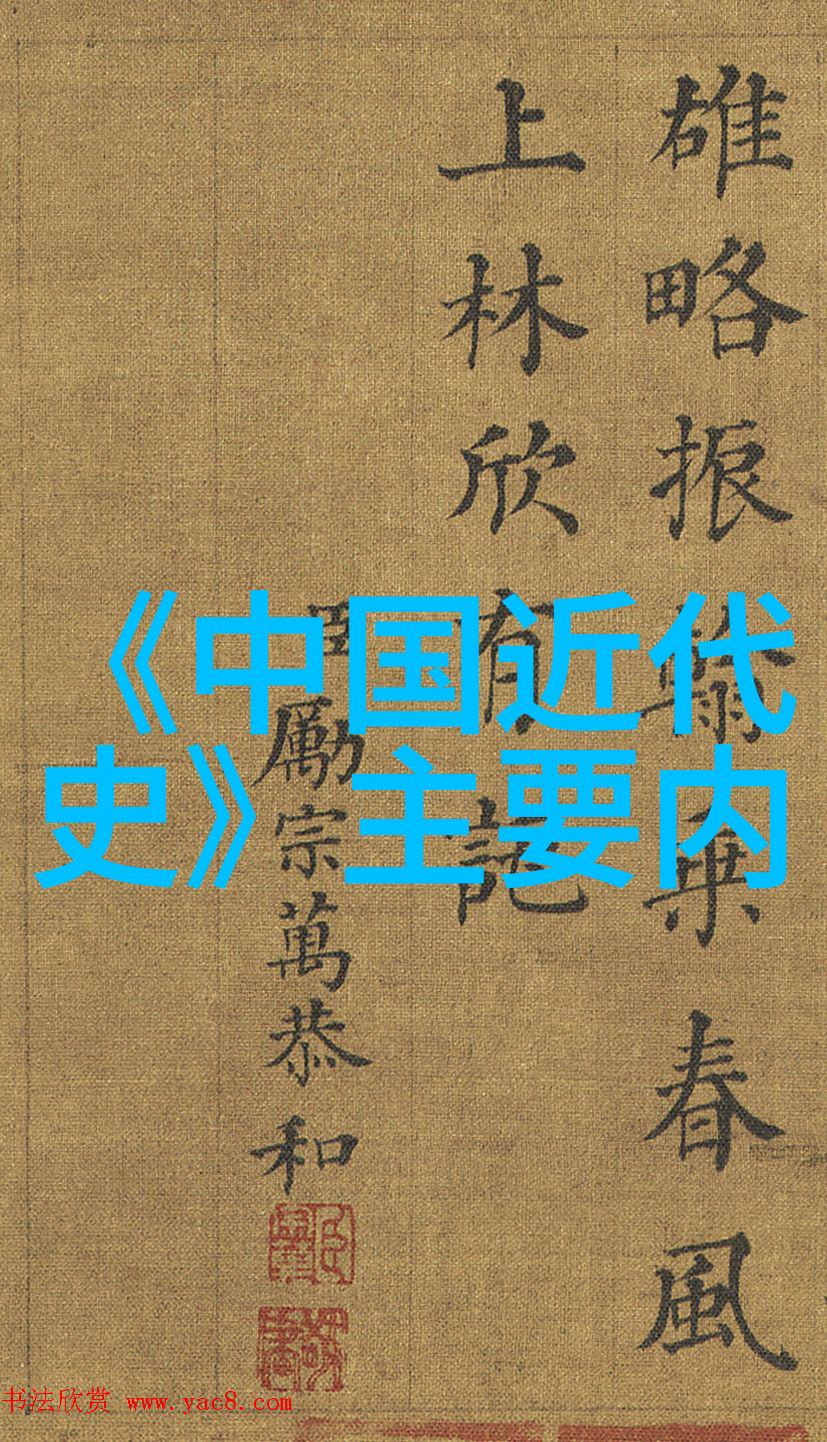 雄略振翰乘春風
上林欣有託
臣勵宗萬恭和
《中国近代
史》主要内
书法欣赏 www.yac8.com